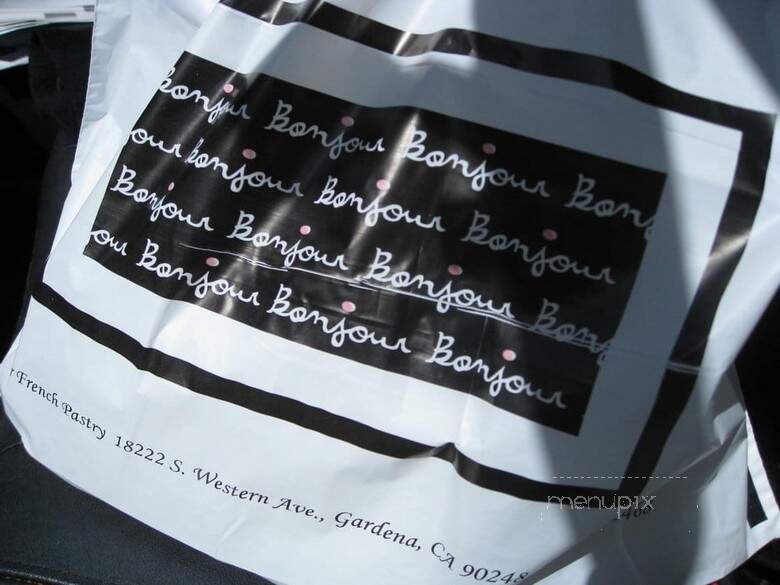 Bonjour Bonjour Bonjour Bonj
our bonjour Bonjour Bonjour
Bonjour Bonjour Bonjour Bonj
our Bonjour Bonjour Bonjour
French Pastry 18222 S. Western Ave., Gardena, CA 90248
menupix